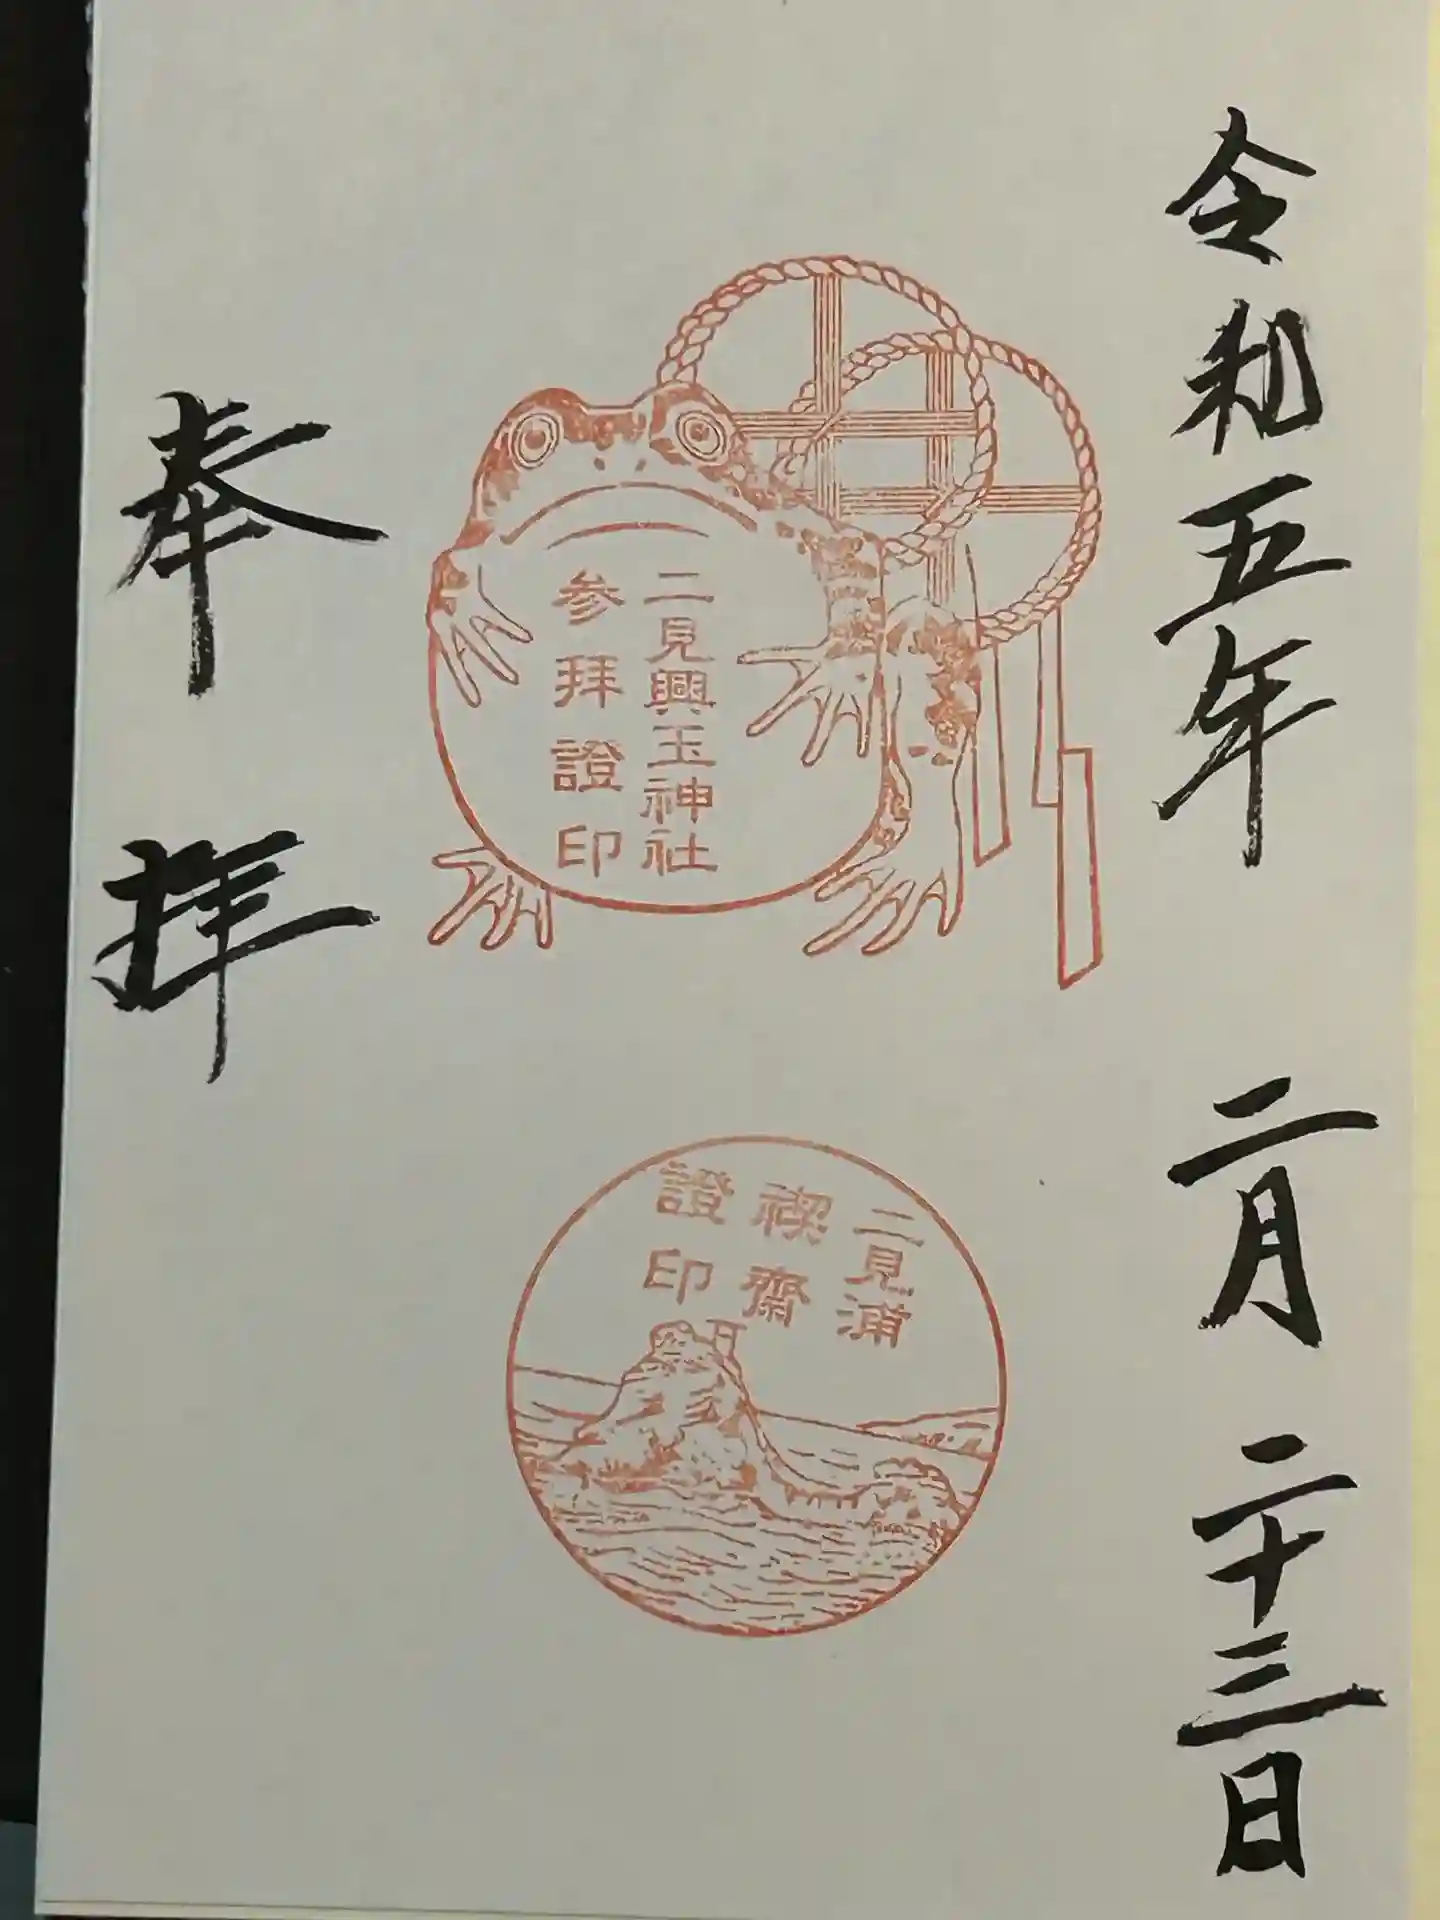 令和五年 二月二十三日
二見興玉神社
参拜證印
二見浦
禊齋
證印
奉拝